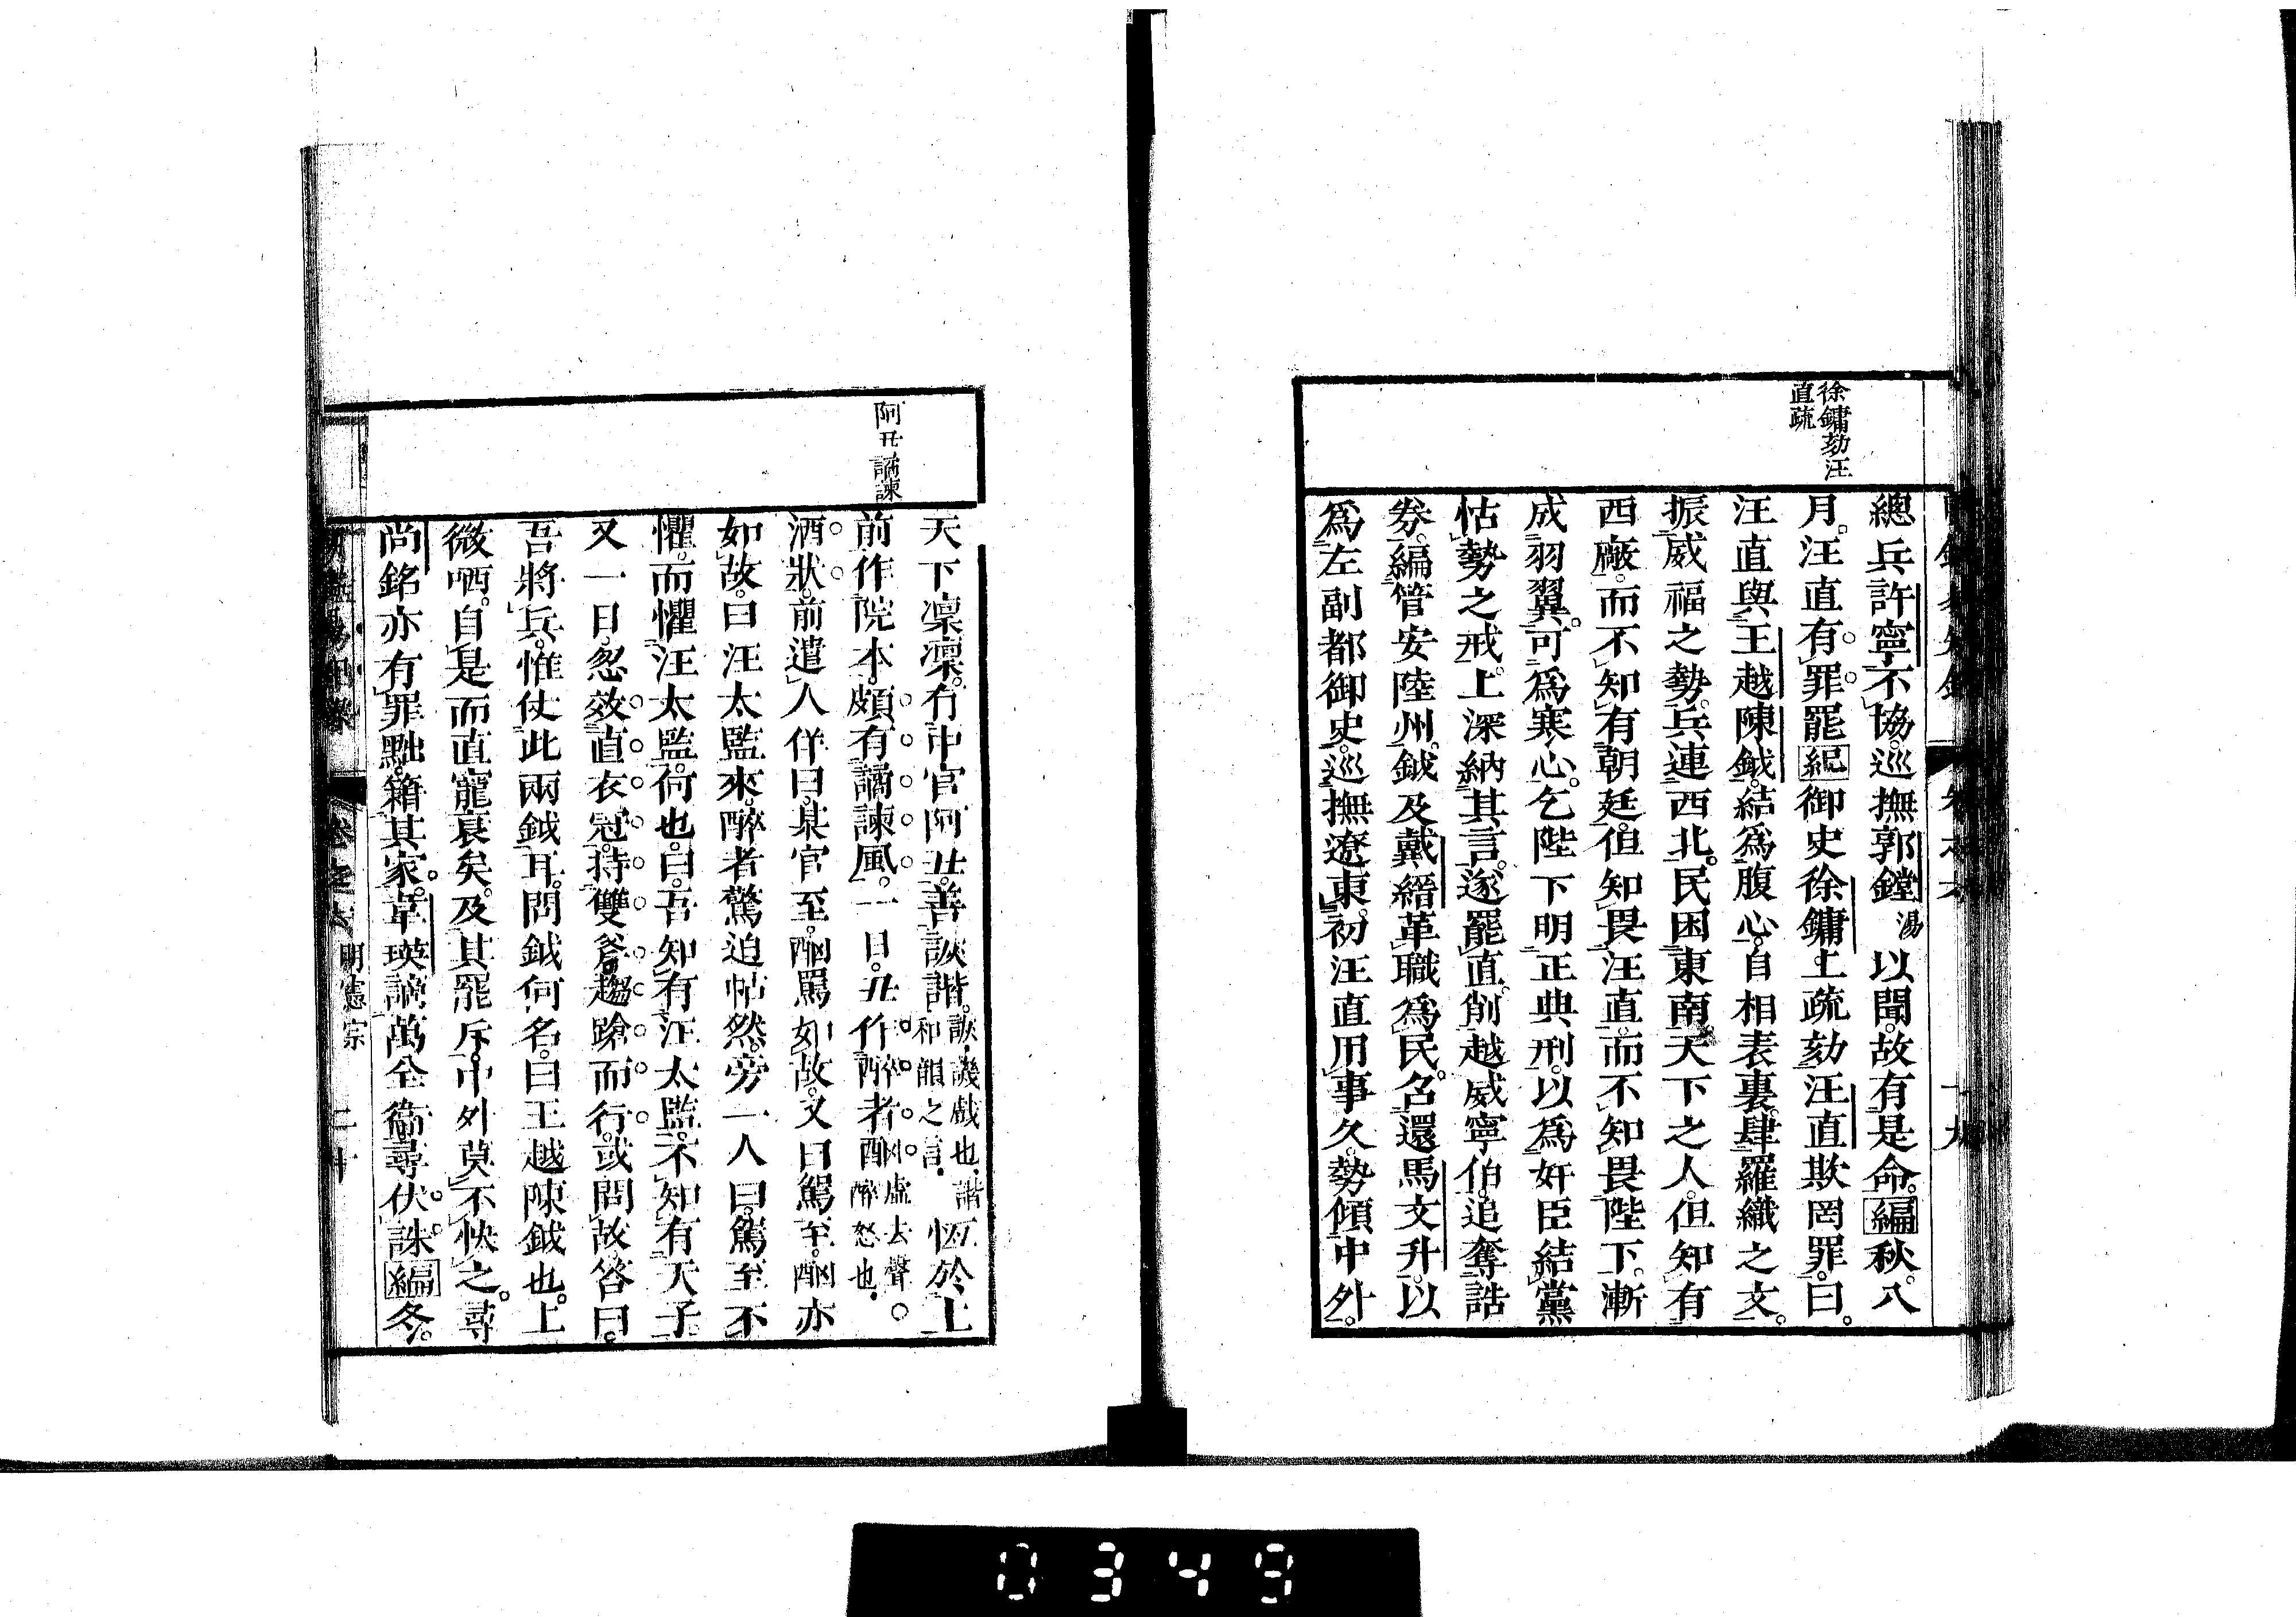 徐鏞劾汪
直疏
總兵許寧不協。巡撫郭鏜湯以聞。故有是命。編秋。八
月。汪直有罪罷紀御史徐鏞。上疏劾汪直欺罔罪。曰。
汪直與王越陳鉞。結爲腹心。自相表裏。肆羅織之文。
振威福之勢。兵連西北。民困東南。天下之人。但知有
西廠。而不知有朝廷。但知畏汪直。而不知畏陛下。漸
成羽翼。可爲寒心。乞陛下明正典刑。以爲奸臣結黨
怙勢之戒。上深納其言。遂罷直。削越威寧伯。追奪誥
券。編管安陸州。鉞及戴縉革職爲民。召還馬文升。以
爲左副都御史。巡撫遼東。初汪直用事久。勢傾中外。
阿丑譎諫
天下凜凜。有中官阿丑。善詼諧。詼。譏戲也。諧和韻之言。恆於上
前作院本。頗有譎諫風。一日。丑作醉者酗酗。虛去聲。醉怒也。
酒狀。前遣人佯曰。某官至。酗罵如故。又曰駕至。酗亦
如故。曰汪太監來。醉者驚迫帖然。旁一人曰。駕至不
懼。而懼汪太監。何也。曰。吾知有汪太監。不知有天子。
又一日。忽效直衣冠。持雙斧。趨蹌而行。或問故。答曰。
吾將兵。惟仗此兩鉞耳。問鉞何名。曰王越陳鉞也。上
微哂。自是而直寵衰矣。及其罷斥。中外莫不快之。尋
尚銘亦有罪黜。籍其家。韋瑛謫萬全衛。尋伏誅。編冬。
明憲宗 二十